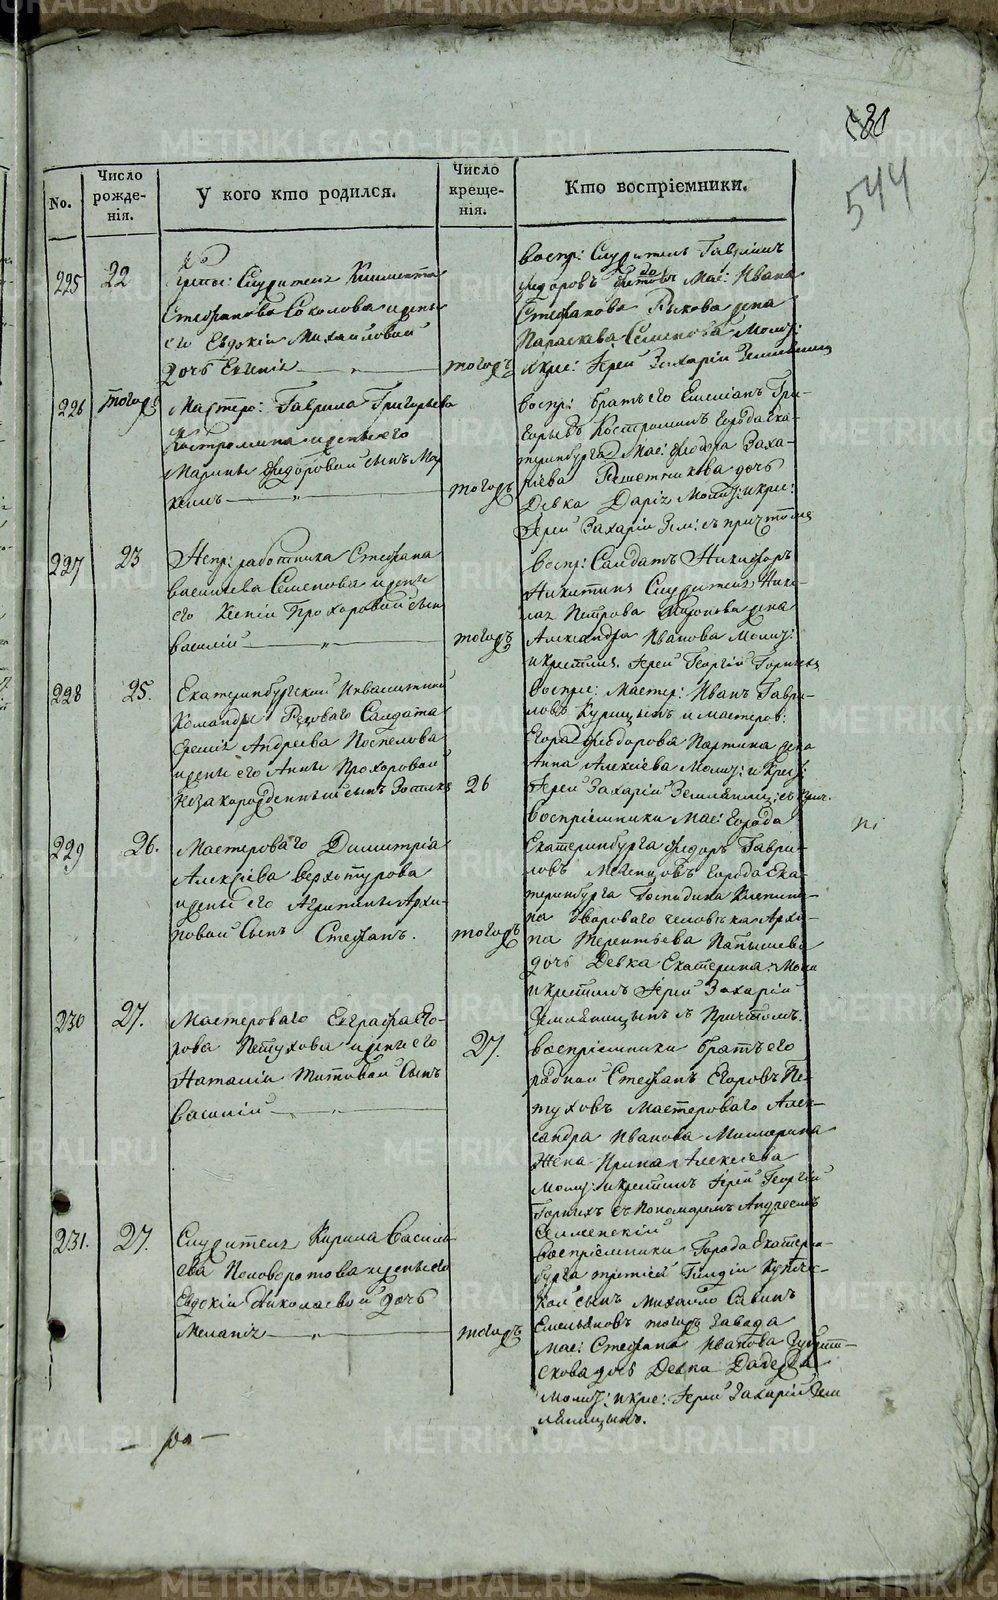 580
544
No.
Число рожденія.
У кого кто родился.
Число крещенія.
Кто воспріемники.
225
22
Служителя Климента
Стефанова Соколова и жены
его Евдокіи Михайловой
дочь Евгенія
тогожъ
воспр: Служитель Гаврiилъ
Федоровъ Мас: Ивана
Стефанова Рыкова жена
Параскева Семенова Молит:
и крес: Іерей Захарій Земляницынъ
226
тогожъ
Мастеро: Гаврила Григорьева
Костромина и жены его
Марины Федоровой сынъ Мар
келлъ
тогожъ
воспр: братъ его Емеліанъ Гри-
горьевъ Костроминъ города Ека-
теринбурга Мас: Федора Заха-
рова Решетникова дочь
Девка Дарія Молит: и крес:
Іерей Захарій Зем: съ причтомъ
227
23
Непр: работника Стефана
Васильева Семенова и жены
его Ксеніи Прохоровой сынъ
Василій
тогожъ
Воспр: Салдатъ Никифоръ
Никитинъ Служителя Нико-
лая Петрова жена
Александра Иванова Молит:
и крестилъ Іерей Георгій Горныхъ
228
25.
Екатеринбургской Инвалидной
Команды Рядоваго Салдата
Андреева Поспелова
и жены его Анны Прохоровой
незаконорожденный сынъ Зотикъ
26
Воспре: Мастер: Иванъ Гаври-
ловъ Курицынъ и мастеров:
Егора Федорова Партина жена
Анна Алексіева Молит: и Крес:
Іерей Захарій Земляниц: съ Прич.
229
26.
Мастероваго Димитрія
Алексіева Верхотурова
и жены его Агрипины Архи-
повой Сынъ Стефанъ.
тогожъ
воспріемники Мас: Города
Екатеринбурга Федоръ Гаври-
ловъ города Ека-
теринбурга Господина
на Двороваго человека Архи-
па Терентьева Папышева
дочь Девка Екатерина: Моли
и крестилъ Іерей Захарій
Земляницынъ съ Причтомъ.
230
27.
Мастероваго Евграфа Его-
рова Петухова и жены его
Наталіи Титовой Сынъ
Василій
27.
воспріемники братъ его
родной Стефанъ Егоровъ Пе-
туховъ Мастероваго Алек-
сандра Иванова
Жена Ирина Алексіева
Молит: и крестилъ Іерей Георгій
Горныхъ съ Пономаремъ Андреемъ
231.
27.
Служителя Кирила Василь-
ева Половоротова и жены его
Евдокіи Николаевой дочь
Меланія
тогожъ
воспріемники Города Екатерин-
бурга третіей Гильдіи Купече-
кой сынъ Михайло Савинъ
Емельяновъ тогожъ Завода
Мас: Стефана Иванова
дочь Девка
Молит: и крес: Іерей Захарій Зем
ляницынъ.